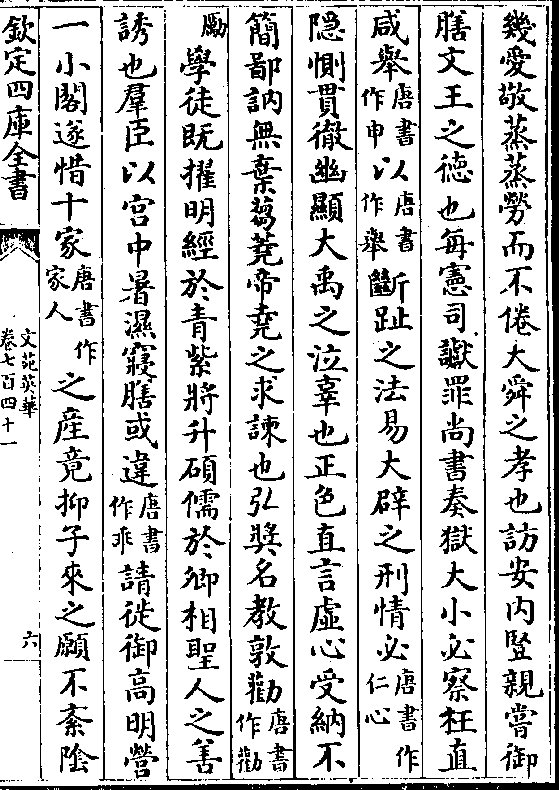 幾愛敬蒸蒸勞而不倦大舜之孝也訪安内豎親嘗御
膳文王之德也每憲司讞罪尚書奏獄大小必察枉直
咸舉唐書作申以唐書作舉斷趾之法易大辟之刑情必唐書作仁心
隱惻貫徹幽顯大禹之泣辜也正色直言虛心受納不
簡鄙訥無棄芻蕘帝堯之求諫也弘奬名教敦勸唐書作勸
勵學徒既擢明經於青紫將升碩儒於卿相聖人之善
誘也羣臣以宫中暑濕寢膳或違唐書作乖請徙御高明營
一小閣遂惜十家唐書作家人之産竟抑子來之願不吝陰
欽定四庫全書
文苑英華
卷七百四十一
六